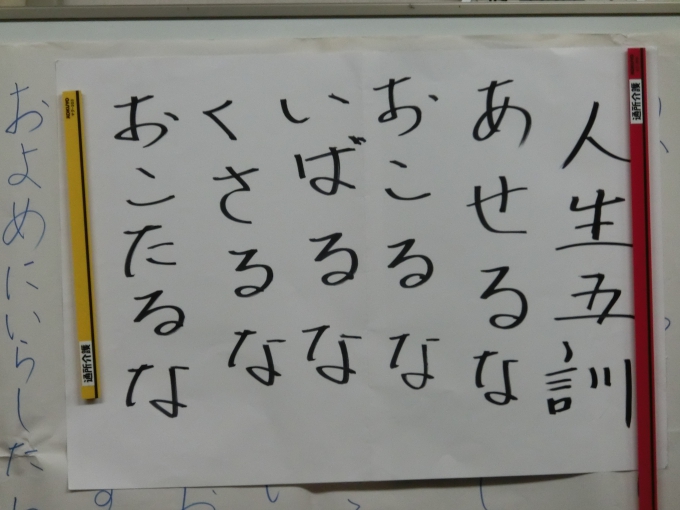 人生五訓
あせるな
おこるな
いばるな
くさるな
おこたるな
およめにいらした
通所介護
通所介護